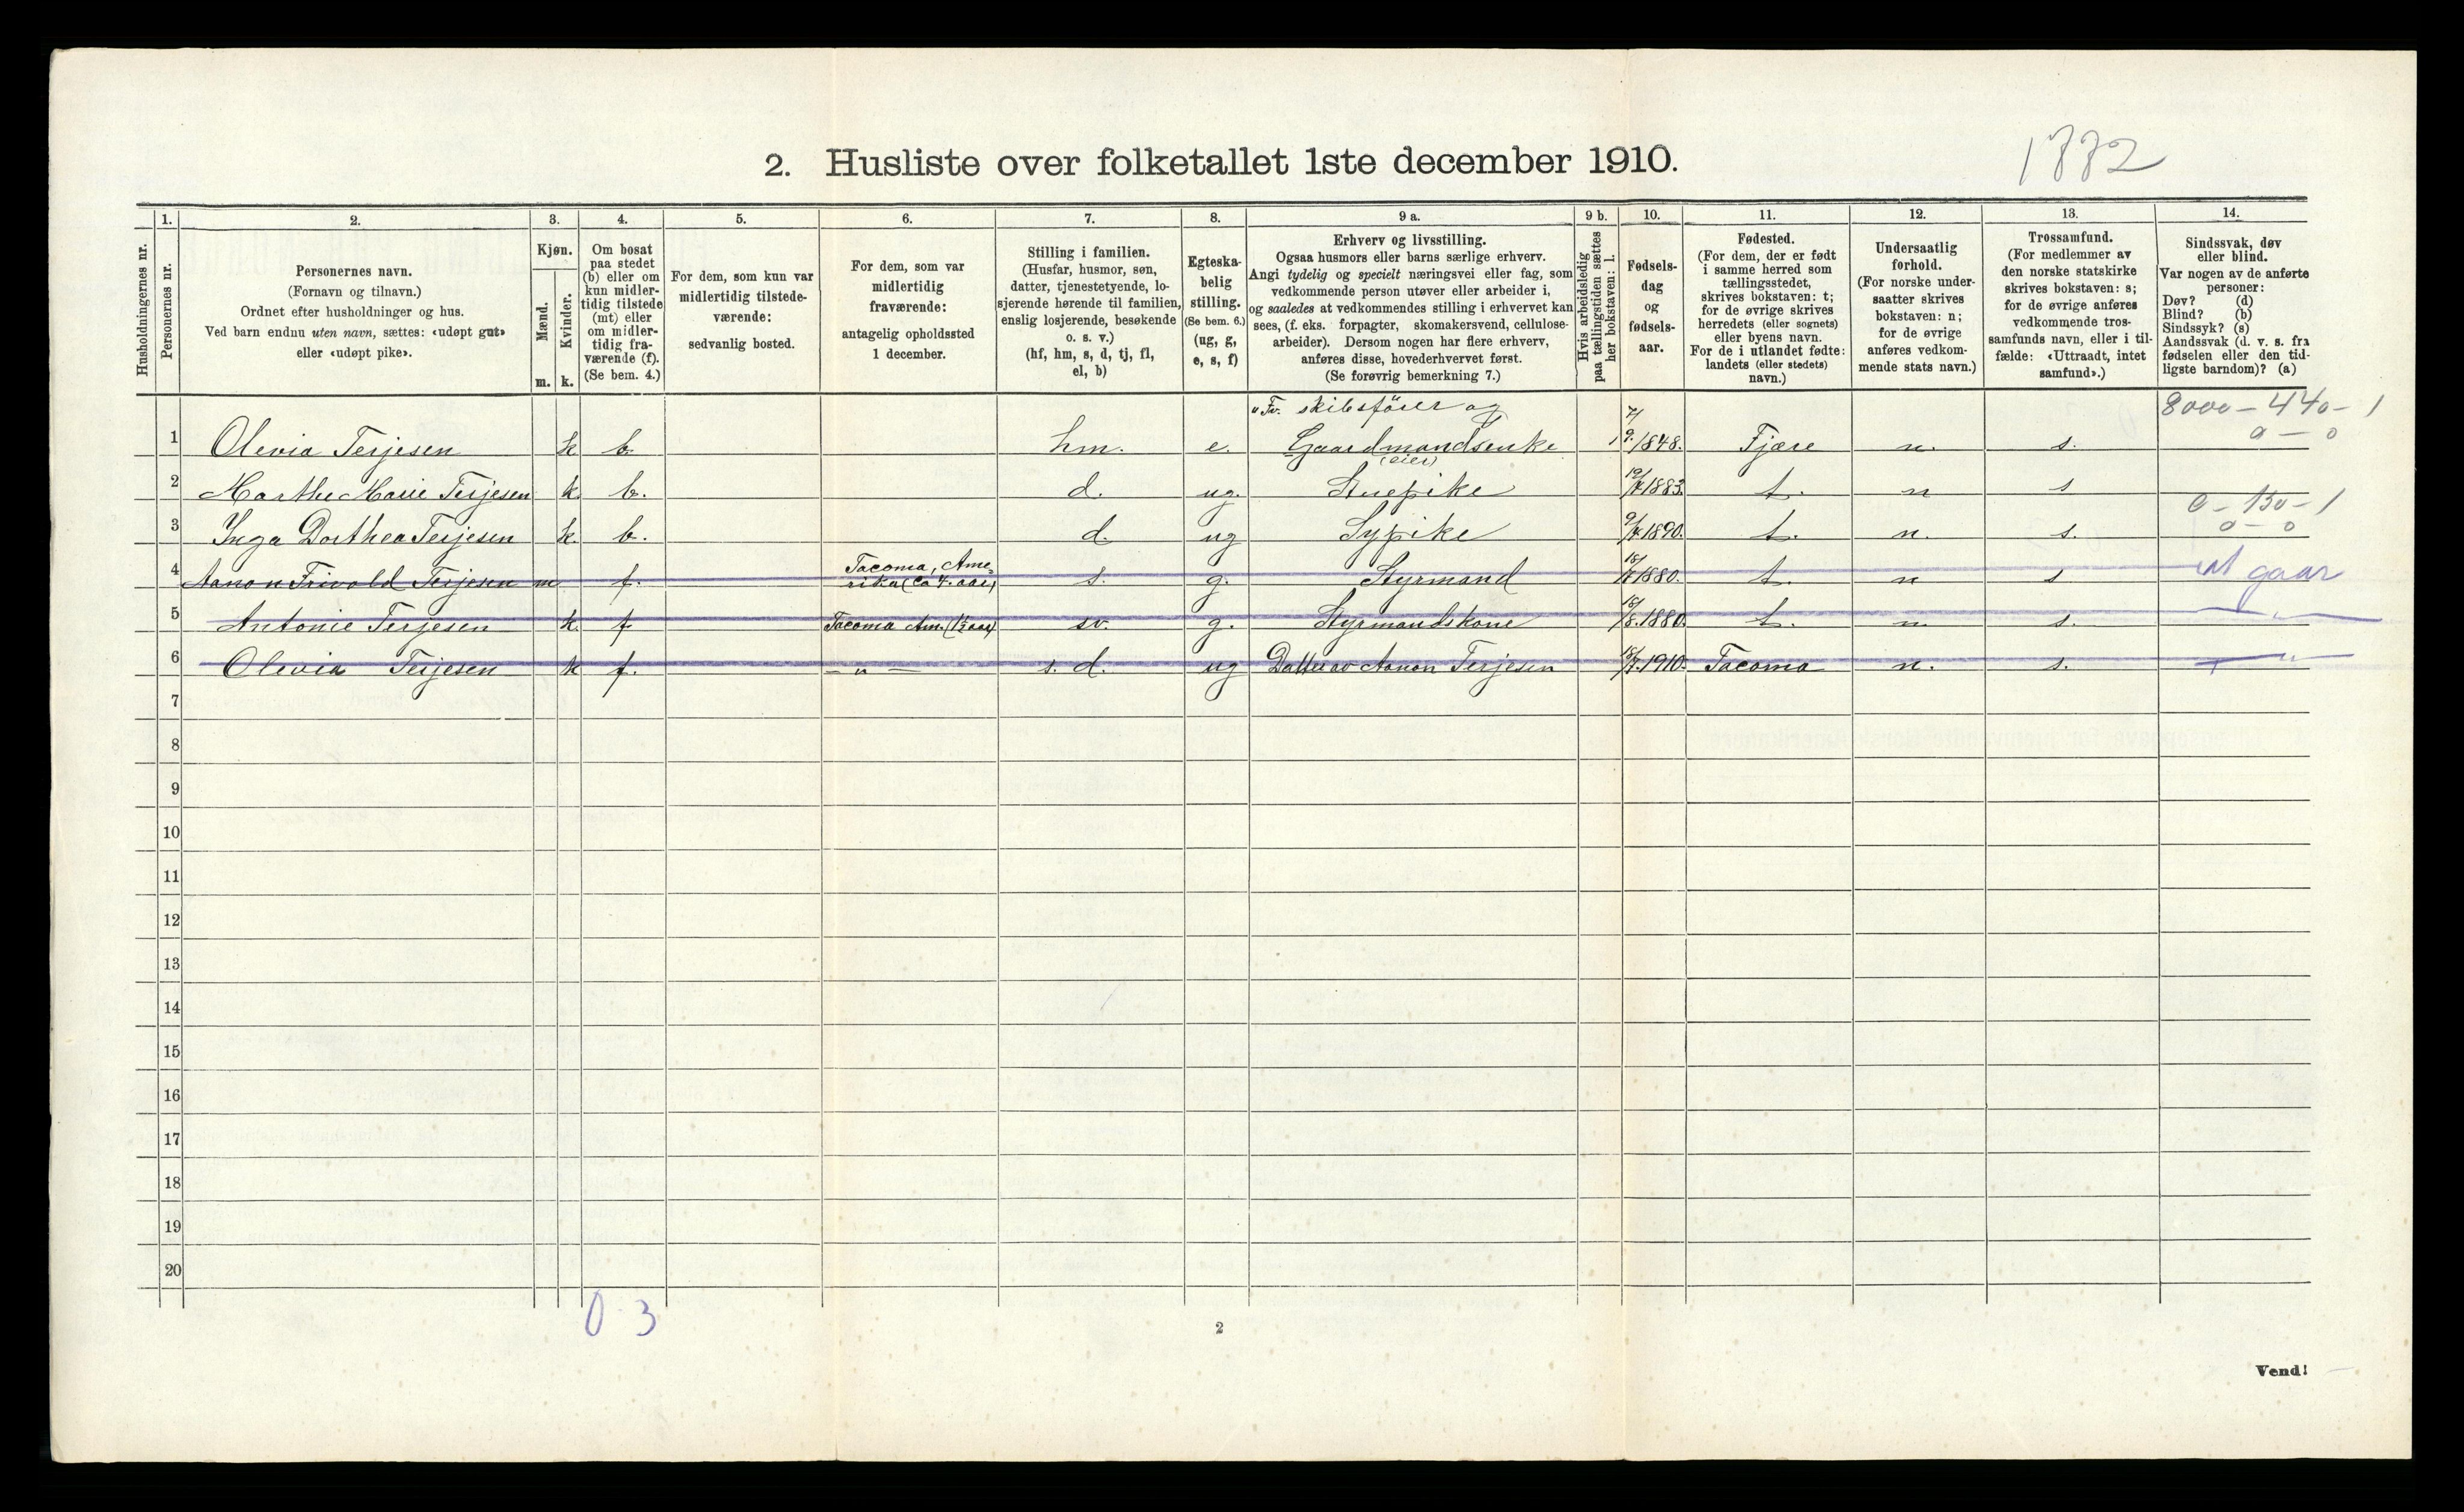 1882
2. Husliste over folketallet 1ste december 1910.
1. 2. 3. 4. 5. 6. 7. 8. 9 a. 9 b. 10. 11. 12. 13. 14.
Husholdningernes nr.
Personernes nr.
Personernes navn.
(Fornavn og tilnavn.)
Ordnet efter husholdninger og hus.
Ved barn endnu uten navn, sættes: «udøpt gut»
eller «udøpt pike».
Kjøn.
Mænd.
Kvinder.
m. k.
Om bosat
paa stedet
(b) eller om
kun midler-
tidig tilstede
(mt) eller
om midler-
tidig fra-
værende (f).
(Se bem. 4.)
For dem, som kun var
midlertidig tilstede-
værende:
sedvanlig bosted.
For dem, som var
midlertidig
fraværende:
antagelig opholdssted
1 december.
Stilling i familien.
(Husfar, husmor, søn,
datter, tjenestetyende, lo-
sjerende hørende til familien,
enslig losjerende, besøkende
o. s. v.)
(hf, hm, s, d, tj, fl,
el, b)
Egteska-
belig
stilling.
(Se bem. 6.)
(ug, g,
e, s, f)
Erhverv og livsstilling.
Ogsaa husmors eller barns særlige erhverv.
Angi tydelig og specielt næringsvei eller fag, som
vedkommende person utøver eller arbeider i,
og saaledes at vedkommendes stilling i erhvervet kan
sees, (f. eks. forpagter, skomakersvend, cellulose-
arbeider). Dersom nogen har flere erhverv,
anføres disse, hovederhvervet først.
(Se forøvrig bemerkning 7.)
Hvis arbeidsledig
paa tællingstiden sættes
her bokstaven: l.
Fødsels-
dag
og
fødsels-
aar.
Fødested.
(For dem, der er født
i samme herred som
tællingsstedet,
skrives bokstaven: t;
for de øvrige skrives
herredets (eller sognets)
eller byens navn.
For de i utlandet fødte:
landets (eller stedets)
navn.)
Undersaatlig
forhold.
(For norske under-
saatter skrives
bokstaven: n;
for de øvrige
anføres vedkom-
mende stats navn.)
Trossamfund.
(For medlemmer av
den norske statskirke
skrives bokstaven: s;
for de øvrige anføres
vedkommende tros-
samfunds navn, eller i til-
fælde: «Uttraadt, intet
samfund».)
Sindssvak, døv
eller blind.
Var nogen av de anførte
personer:
Døv? (d)
Blind? (b)
Sindssyk? (s)
Aandssvak (d. v. s. fra
fødselen eller den tid-
ligste barndom)? (a)
"Fv. skibsfører og 8000 – 440 – 1
0 – 0
1 Olevia Terjesen k b. hm. e. Gaardmandsenke 7/9. 1848. Fjære n. s.
(eier)
2 Marthe Marie Terjesen k b. d. ug. Stuepike 1883. t. n s
0 – 130 – 1
0 – 0
3 Inga Dorthea Terjesen k. b. d. ug Sypike 1890. t. n. s.
Tacoma, Ame-
4 Aanon Trivold Terjesen m f. rika (ca 4. aar) s. g. Styrmand 1880. t. n s ut gaar
5 Antonie Terjesen k. f Tacoma Am. (1½ aar) sv. g. Styrmandskone 1880. t. n. s. — " —
6 Olevia Terjesen k f. — " — s. d. ug Datter av Aanon Terjesen 1910. Tacoma n. s. — " —
7
8
9
10
11
12
13
14
15
16
17
18
19
20
0 - 3
2
Vend!